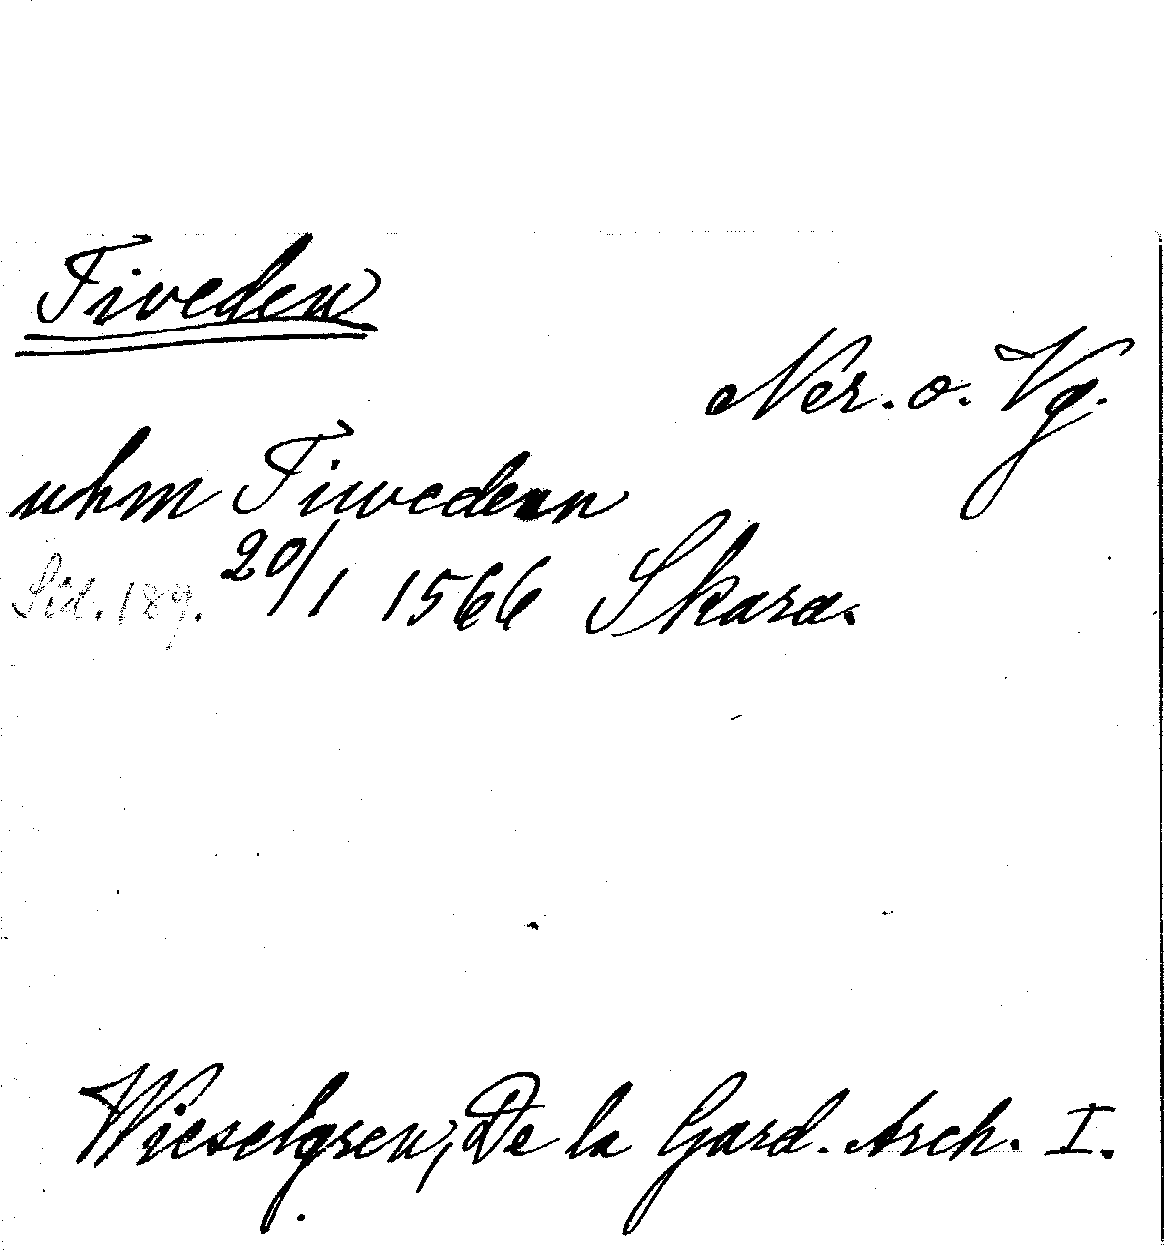 Tiveden
Ner. o. Vg.
uhm Tiwedenn
Sid. 189. 20/1 1566 Skara.
Wieselgren, De la Gard. Arch. I.